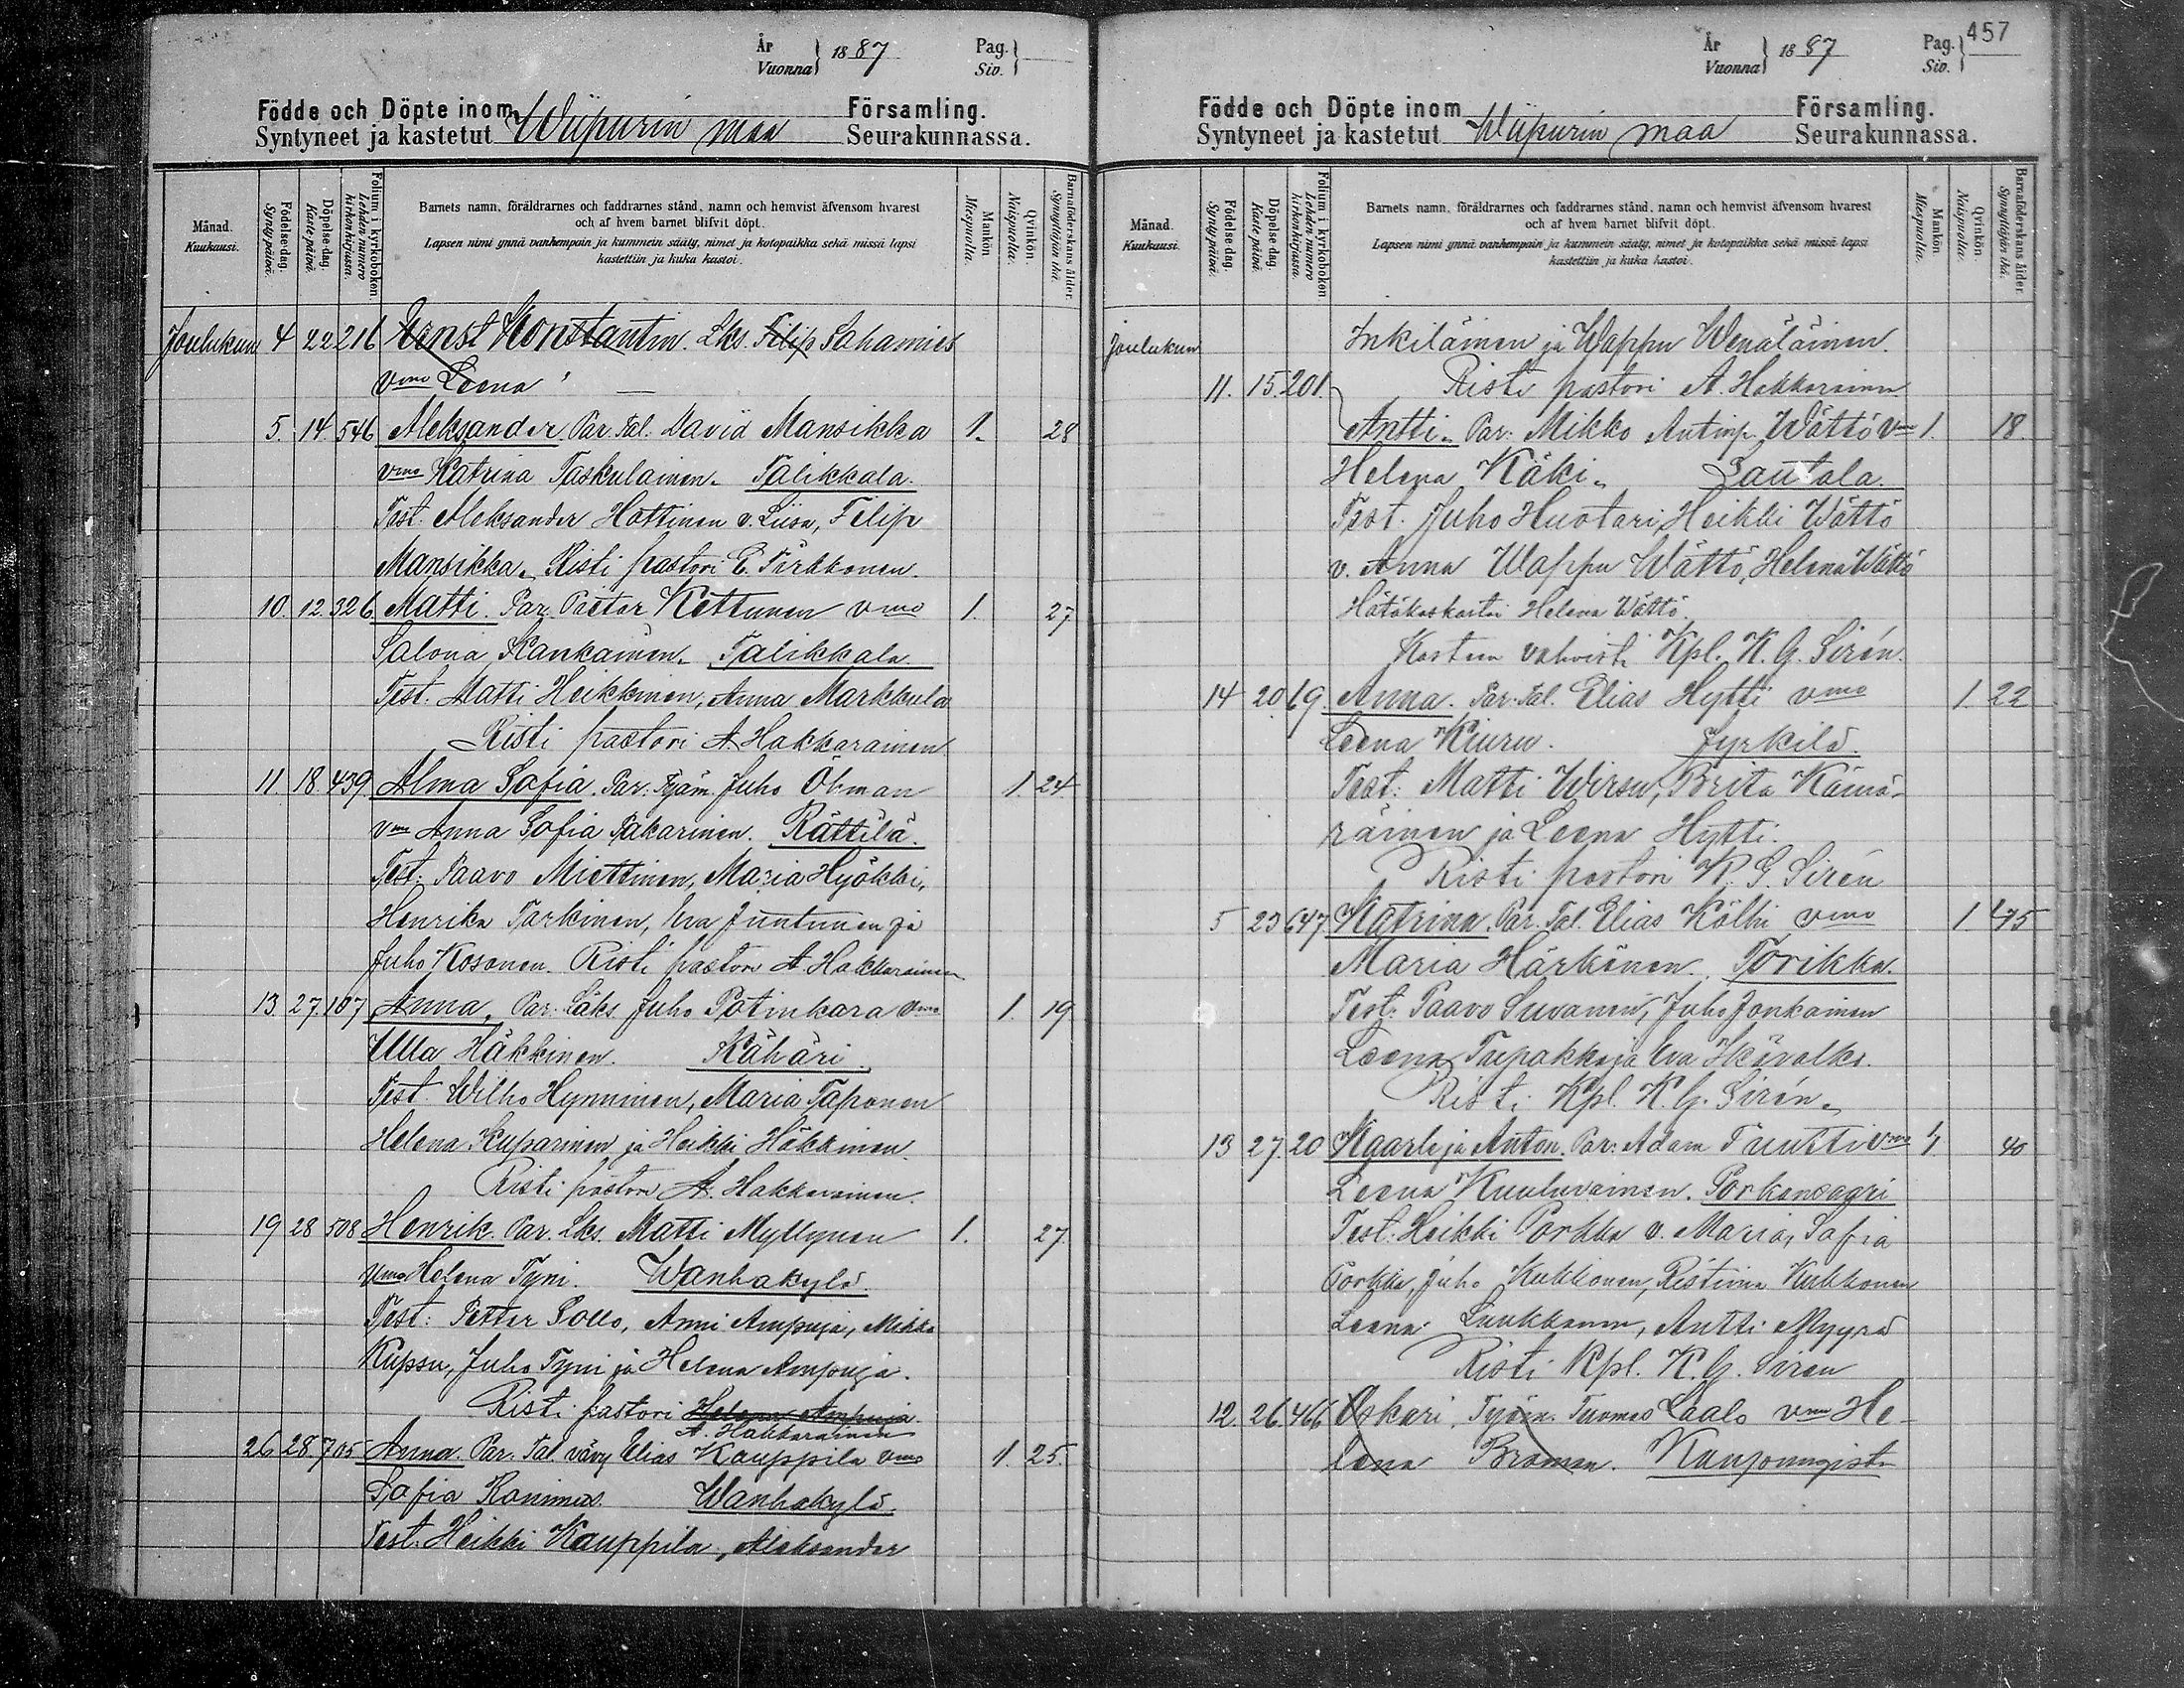 År
Vuonna } 1887
Pag.
Siv. }
Födde och Döpte inom Församling.
Syntyneet ja kastetut Wiipurin maa Seurakunnassa.
Månad.
Kuukausi.
Födelse-dag.
Synty päivä.
Döpelse-dag.
Kaste päivä.
Folium i kyrkoboken.
Lehden numero kirkonkirjassa.
Barnets namn, föräldrarnes och faddrarnes stånd, namn och hemvist äfvensom hvarest
och af hvem barnet blifvit döpt.
Lapsen nimi ynnä vanhempain ja kummein sääty, nimet ja kotopaikka sekä missä lapsi
kastettiin ja kuka kastoi.
Mankön.
Miespuolia.
Qvinkön.
Naispuolia.
Barnaföderskans ålder.
Synnyttäjän ikä.
Joulukun 4 22 216 Ernst Konstantin. Lks. Filip Sahamies
vmo Leena
5. 14. 546 Aleksander Par. Tal. David Mansikka 1. 28
vmo Katrina Taskulainen. Talikkala.
Test. Aleksander Hottinen v. Liisa, Filip
Mansikka. Risti pastori E. Färkkonen.
10. 12. 326. Matti. Par. Pietar Kettunen vmo 1. 27
Salona Kankainen. Talikkala.
Test. Matti Heikkinen, Anna Markkula
Risti pastori A. Hakkarainen
11. 18. 439. Alma Sofia. Par. Työm. Juho Öhman 1. 24
vmo Anna Sofia Pakarinen. Rättilä.
Test. Paavo Miettinen, Maria Hyökki,
Henrika Tarkinen, Eva Juntunen ja
Juho Kosonen. Risti pastori A. Hakkarainen
13. 27. 107 Anna, Par. Läks. Juho Potinkara vmo 1. 19
Ulla Häkkinen. Kähäri.
Test. Wilho Hynninen, Maria Taponen
Helena Kuparinen ja Heikki Häkkinen
Risti pastori A. Hakkarainen.
19 28 508 Henrik. Par. Lks. Matti Myllynen 1. 27.
vmo Helena Tyni. Wanhakylä.
Test: Petter Sollo, Anni Ampuja, Mikko
Kupsu, Juho Tyni ja Helena Ampuja.
Risti pastori Helena Ampuja
A. Hakkarainen
26 28. 705 Anna. Par. Tal. vävy Elias Kauppila vmo 1. 25.
Sofia Ronimus. Wanhakylä.
Test. Heikki Kauppila, Aleksander
457
År
Vuonna } 1887
Pag.
Siv. }
Födde och Döpte inom Församling.
Syntyneet ja kastetut Wiipurin maa Seurakunnassa.
Månad.
Kuukausi.
Födelse-dag.
Synty päivä.
Döpelse-dag.
Kaste päivä.
Folium i kyrkoboken.
Lehden numero kirkonkirjassa.
Barnets namn, föräldrarnes och faddrarnes stånd, namn och hemvist äfvensom hvarest
och af hvem barnet blifvit döpt.
Lapsen nimi ynnä vanhempain ja kummein sääty, nimet ja kotopaikka sekä missä lapsi
kastettiin ja kuka kastoi.
Mankön.
Miespuolia.
Qvinkön.
Naispuolia.
Barnaföderskans ålder.
Synnyttäjän ikä.
Joulukun Inkiläinen ja Wappu Wenäläinen.
11. 15. 201. Risti pastori A. Hakkarainen
Antti. Par. Mikko Antinp. Wättö vmo 1. 18.
Helena Käki. Lautala.
Test. Juho Huotari, Heikki Wättö
v. Anna Wappu Wättö, Helena Wättö
Hätäkaskastoi Helena Wättö.
Kasteen vahvisti Kpl. K. G. Sirén.
14 20 69. Anna. Par. Tal. Elias Hytti vmo 1. 22
Leena Kiuru. Jyrkilä.
Test: Matti Wirsu, Brita Kämä-
räinen ja Leena Hytti.
Risti pastori K. G. Sirén
5 23 647 Katrina. Par. Tal. Elias Kölhi vmo 1 45
Maria Härkönen. Torikka.
Test: Paavo Suvanen, Juho Jonkainen
Leena Tupakka ja Eva Ikävalko.
Risti Kpl. K. G. Sirén.
13 27. 20 Kaarle ja Anton. Par: Adam Tuutti vmo 40
Leena Kuuluvainen. Porkansaari
Test: Heikki Porkka v. Maria, Sofia
Porkka, Juho Kukkonen, Ristiina Kukkonen
Leena Luukkanen, Antti Myyrä
Risti Kpl. K. G. Siren
12. 26. 466 Oskari. Työm. Tuomas Laalo vmo He-
lena Broman. Kaupungist